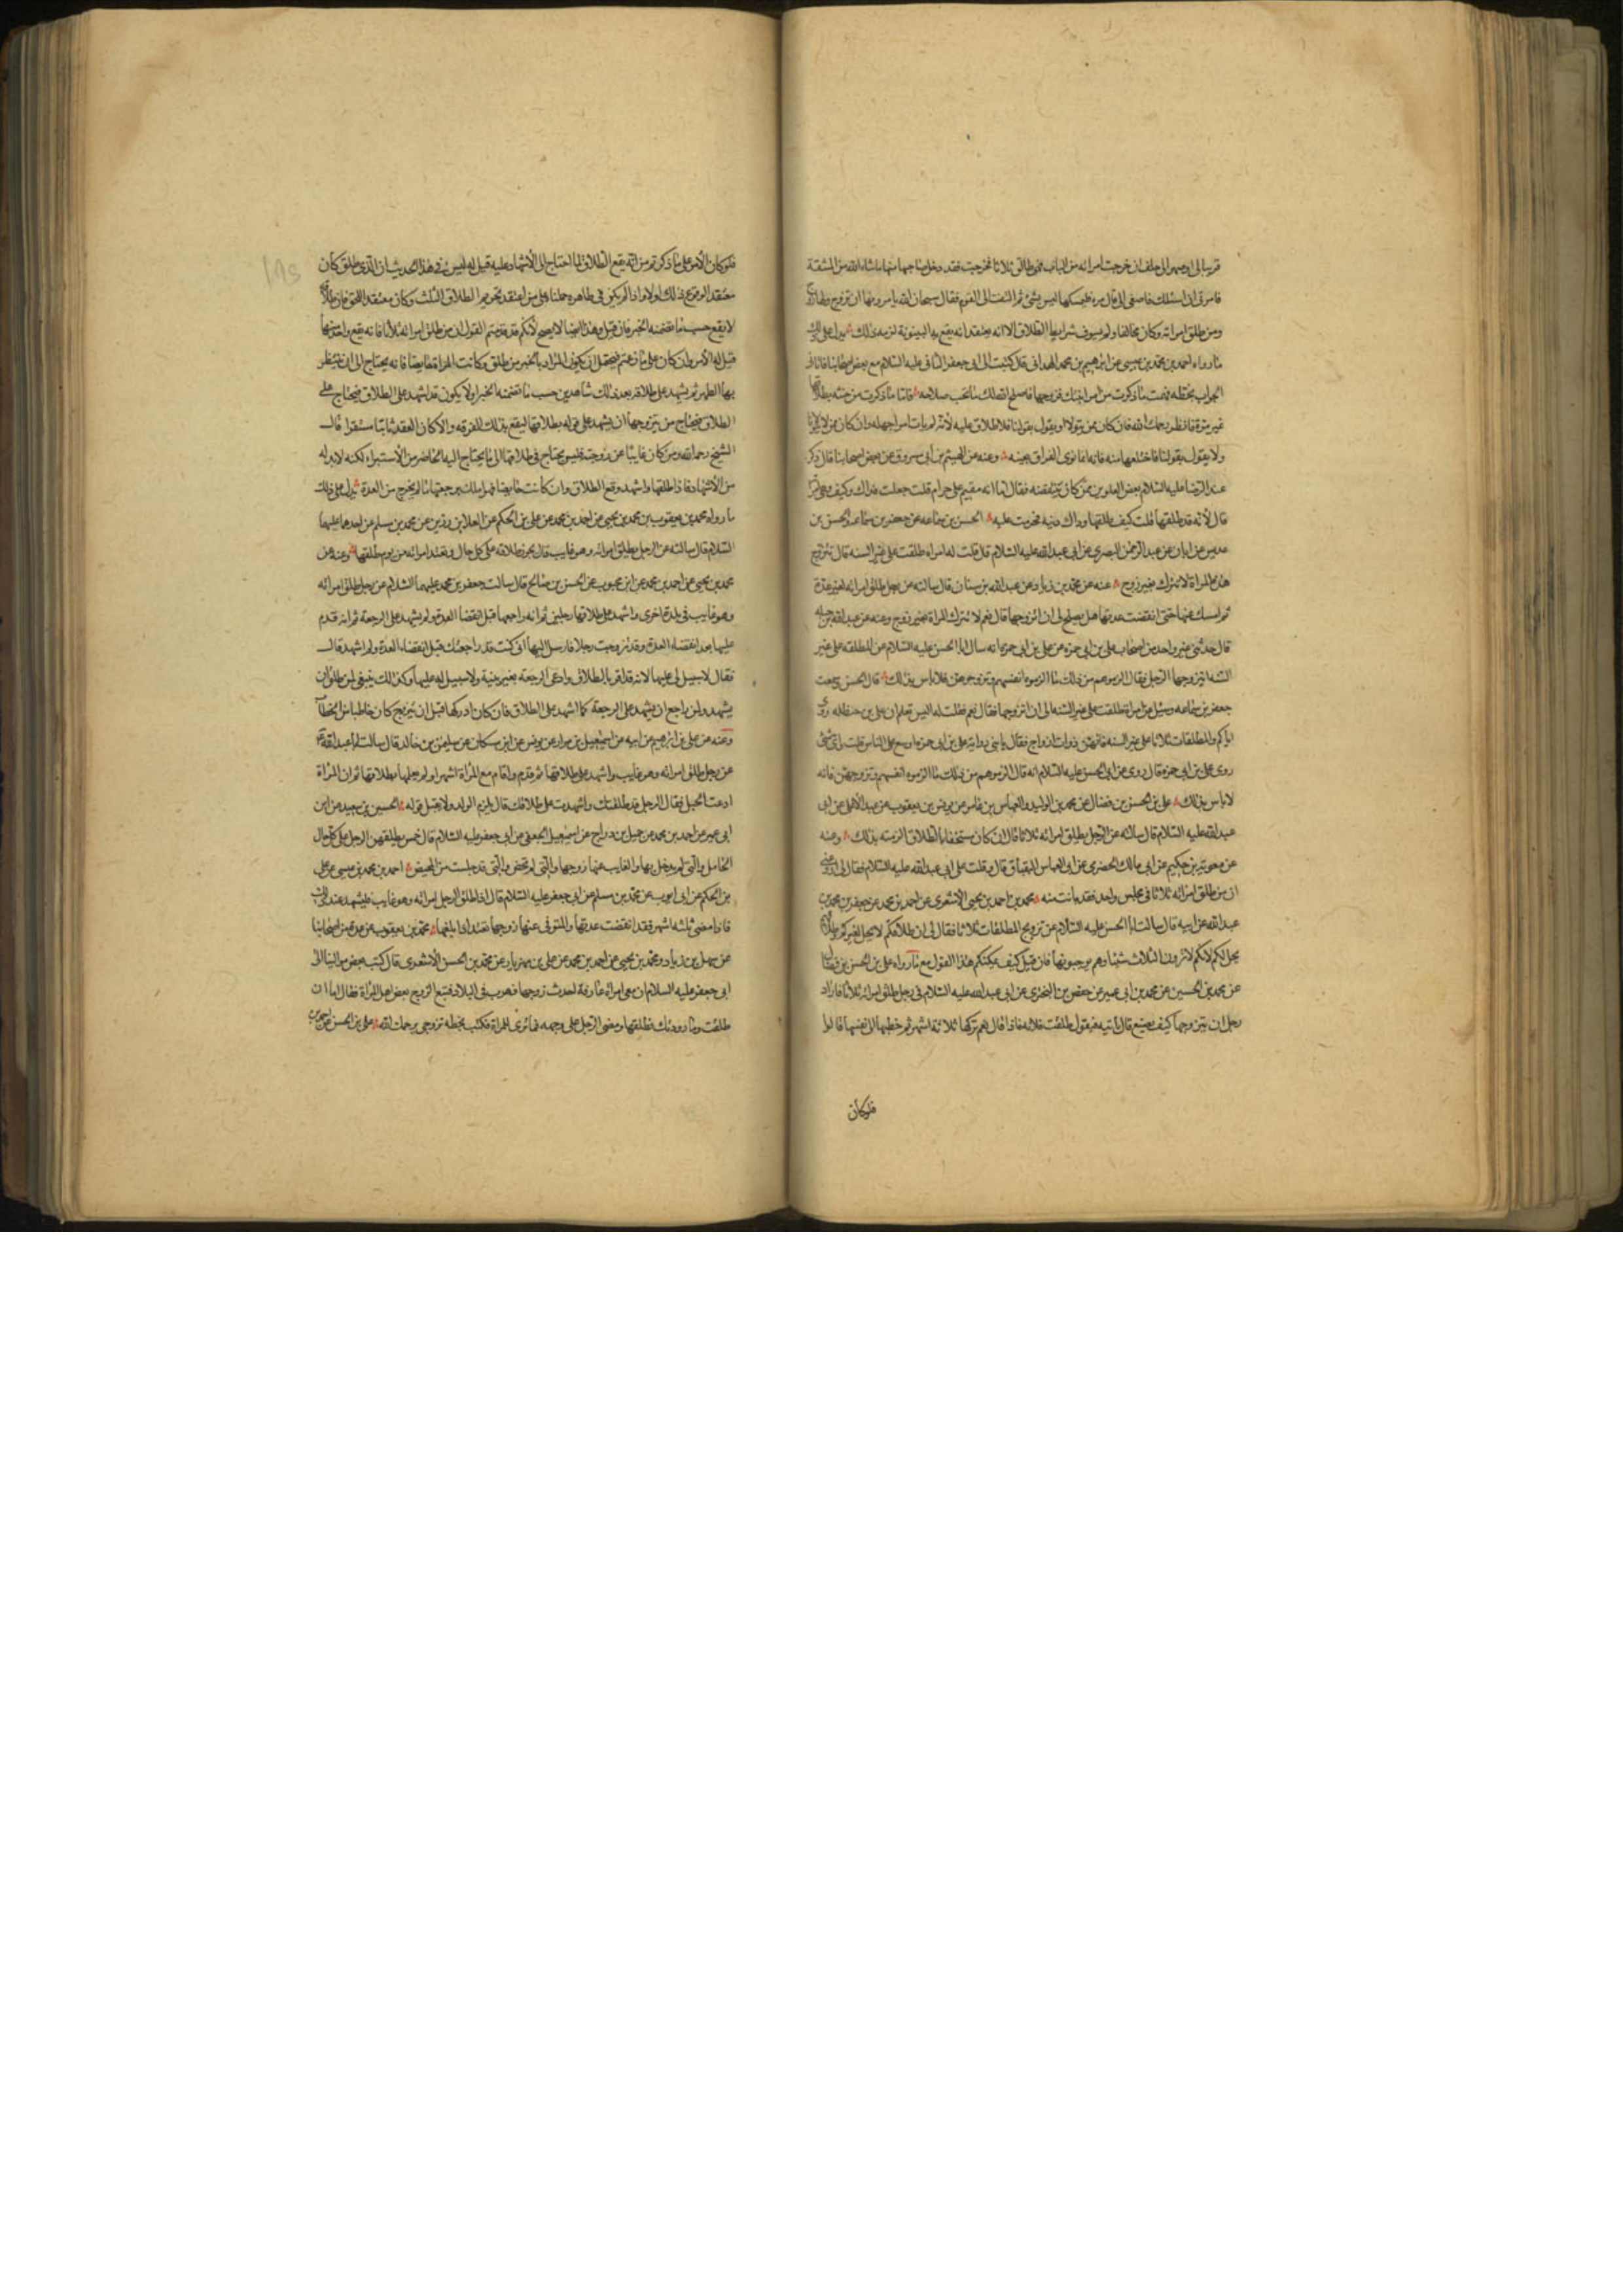 قريبا لى او صهر الى حلف ان خرجت امراته من الباب فهى طالق ثلاثا فخرجت فقد دخل صاحبها منها ما شاء الله من المشقة
فامرنى ان اسئلك فاصغى الى قال مره فليمسكها ليس بشئ ثم التفت الى القوم فقال سبحان الله يامرونها ان تزوج ولها زوج
ومن طلق امراته وكان مخالفا ولم يستوف شرايط الطلاق الا انه يعتقد انه يقع به البينونة لزمه ذلك يدل على ذلك
ما رواه احمد بن محمد بن عيسى عن ابرهيم بن محمد الهمدانى قال كتبت الى ابى جعفر الثانى عليه السلام مع بعض اصحابنا فاتانى
الجواب بخطه فهمت ما ذكرت من امر ابنتك وزوجها فاصلح الله لك ما تحب صلاحه فاما ما ذكرت من حنثه بطلاقها
غير مرة فانظر رحمك الله فان كان ممن يتولانا ويقول بقولنا فلا طلاق عليه لانه لم يات امرا جهله وان كان ممن لا يتولانا
ولا يقول بقولنا فاختلعها منه فانه انما نوى الفراق بعينه وعنه عن الهيثم بن ابى مسروق عن بعض اصحابنا قال ذكر
عند الرضا عليه السلام بعض العلويين ممن كان ينتقصه فقال اما انه مقيم على حرام قلت جعلت فداك وكيف وهى امراته
قال لانه قد طلقها قلت كيف طلقها قال طلقها وذاك دينه فحرمت عليه الحسن بن سماعه عن جعفر بن سماعه والحسن بن
عديس عن ابان عن عبد الرحمن البصرى عن ابى عبد الله عليه السلام قال قلت له امراة طلقت على غير السنه قال تتزوج
هذه المراة لا تترك بغير زوج عنه عن محمد بن زياد عن عبد الله بن سنان قال سالته عن رجل طلق امراته لغير عدة
ثم امسك عنها حتى انقضت عدتها هل يصلح لى ان اتزوجها قال نعم لا تترك المراة بغير زوج وعنه عن عبد الله بن جبله
قال حدثنى غير واحد من اصحاب على بن ابى حمزه عن على بن ابى حمزه انه سال ابا الحسن عليه السلام عن المطلقه على غير
السنه ايتزوجها الرجل فقال الزموهم من ذلك ما الزموه انفسهم وتزوجوهن فلا باس بذلك قال الحسن وسمعت
جعفر بن سماعه وسئل عن امراة طلقت على غير السنه الى ان اتزوجها فقال نعم فقلت له اليس تعلم ان على بن حنظله روى
اياكم والمطلقات ثلاثا على غير السنه فانهن ذوات ازواج فقال يا بنى رواية على بن ابى حمزه اوسع على الناس قلت واى شئ
روى على بن ابى حمزه قال روى عن ابى الحسن عليه السلام انه قال الزموهم من ذلك ما الزموه انفسهم وتزوجوهن فانه
لا باس بذلك على بن الحسن بن فضال عن محمد بن الوليد والعباس بن عامر عن يونس بن يعقوب عن عبد الاعلى عن ابى
عبد الله عليه السلام قال سالته عن الرجل يطلق امراته ثلاثا قال ان كان مستخفا بالطلاق الزمته بذلك وعنه
عن معوية بن حكيم عن ابى مالك الحضرمى عن ابى العباس البقباق قال دخلت على ابى عبد الله عليه السلام فقال لى ارو عنى
ان من طلق امراته ثلاثا فى مجلس واحد فقد بانت منه محمد بن احمد بن يحيى الاشعرى عن احمد بن محمد عن جعفر بن محمد بن
عبد الله عن ابيه قال سالت ابا الحسن عليه السلام عن تزويج المطلقات ثلاثا فقال لى ان طلاقكم لا يحل لغيركم وطلاقهم
يحل لكم لانكم لا ترون الثلاث شيئا وهم يوجبونها فان قيل كيف يمكنكم هذا القول مع ما رواه على بن الحسن بن فضال
عن محمد بن الحسين عن محمد بن ابى عمير عن حفص بن البخترى عن ابى عبد الله عليه السلام فى رجل طلق امراته ثلاثا فاراد
رجل ان يتزوجها كيف يصنع قال ياتيه فيقول طلقت فلانه فاذا قال نعم تركها ثلاثة اشهر ثم خطبها الى نفسها قالوا
فلو كان
فلو كان الامر على ما ذكرتم من انه يقع الطلاق لما احتاج الى الاشهاد عليه قيل له ليس فى هذا الحديث ان الذى طلق كان
معتقدا لوقوع ذلك او لا واذا لم يكن فى ظاهره حملنا على من اعتقد تحريم الطلاق الثلث وكان معتقدا للحق فان طلاقه
لا يقع حسب ما تضمنه الخبر فان قيل وهذا ايضا لا يصح لانكم قد قدمتم القول ان من طلق امراته ثلاثا فانه يقع واحدة منها
قيل له الامر وان كان على ما زعمتم فيحتمل ان يكون المراد بالخبر من طلق وكانت المراة حايضا فانه يحتاج الى ان ينتظر
بها الطهر ثم يشهد على طلاقه بعد ذلك شاهدين حسب ما تضمنه الخبر او لا يكون قد اشهد على الطلاق فيحتاج على
الطلاق فيحتاج من يتزوجها ان يشهد على قوله بطلاقها ليقع بذلك الفرقه والا كان العقد ثابتا مستقرا قال
الشيخ رحمه الله ومن كان غايبا عن زوجته فليس يحتاج فى طلاقها الى ما يحتاج اليه الحاضر من الاستبراء لكنه لا بد له
من الاشهاد فاذا طلقها واشهد وقع الطلاق وان كانت حايضا فهو املك برجعتها ما لم يخرج من العدة يدل على ذلك
ما رواه محمد بن يعقوب عن محمد بن يحيى عن احمد بن محمد عن على بن الحكم عن العلا بن رزين عن محمد بن مسلم عن احدهما عليهما
السلام قال سالته عن الرجل يطلق امراته وهو غايب قال يجوز طلاقه على كل حال وتعتد امراته من يوم طلقها وعنه عن
محمد بن يحيى عن احمد بن محمد عن ابن محبوب عن الحسن بن صالح قال سالت جعفر بن محمد عليهما السلام عن رجل طلق امراته
وهو غايب فى بلدة اخرى واشهد على طلاقها رجلين ثم انه راجعها قبل انقضا العدة ولم يشهد على الرجعة ثم انه قدم
عليها بعد انقضاء العدة وقد تزوجت رجلا فارسل اليها انى كنت قد راجعتك قبل انقضاء العدة ولم اشهد قال
فقال لا سبيل له عليها لانه قد اقر بالطلاق وادعى الرجعة بغير بينة ولا سبيل له عليها وكذلك ينبغى لمن طلق ان
يشهد ولمن راجع ان يشهد على الرجعة كما اشهد على الطلاق فان كان ادركها قبل ان تتزوج كان خاطبا من الخطاب
وعنه عن على بن ابرهيم عن ابيه عن اسمعيل بن مرار عن يونس عن ابن مسكان عن سليمن بن خالد قال سالت ابا عبد الله ع
عن رجل طلق امراته وهو غايب واشهد على طلاقها ثم قدم واقام مع المراة اشهرا ولم يعلمها بطلاقها ثم ان المراة
ادعت الحبل فقال الرجل قد طلقتك واشهدت على طلاقك قال يلزم الولد ولا يقبل قوله الحسين بن سعيد عن ابن
ابى عمير عن احمد بن محمد عن جميل بن دراج عن اسمعيل الجعفى عن ابى جعفر عليه السلام قال خمس يطلقهن الرجل على كل حال
الحامل والتى لم يدخل بها والغايب عنها زوجها والتى لم تحض والتى قد جلست من المحيض احمد بن محمد بن عيسى عن على
بن الحكم عن ابى ايوب عن محمد بن مسلم عن ابى جعفر عليه السلام قال اذا طلق الرجل امراته وهو غايب فليشهد عند ذلك
فاذا مضى ثلثه اشهر فقد انقضت عدتها والمتوفى عنها زوجها تعتد اذا بلغها محمد بن يعقوب عن عدة من اصحابنا
عن سهل بن زياد ومحمد بن يحيى عن احمد بن محمد عن على بن مهزيار عن محمد بن الحسن الاشعرى قال كتب بعض موالينا الى
ابى جعفر عليه السلام ان معى امراة عارفة احدث زوجها فهرب فى البلاد فتبع الزوج بعض اهل المراة فقال اما ان
طلقت واما رددتك فطلقها ومضى الرجل على وجهه فما ترى للمراة فكتب بخطه تزوجى يرحمك الله على بن الحسن عن احمد بن